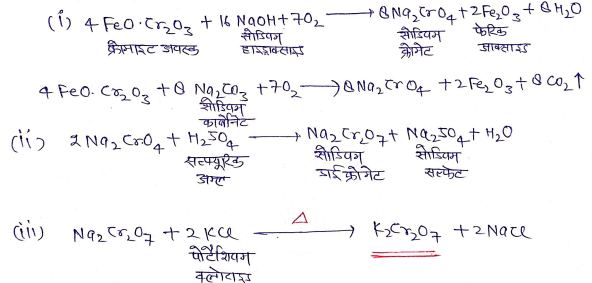 (i) 4 FeO·Cr₂O₃ + 16 NaOH + 7O₂ ⟶ 8Na₂CrO₄ + 2Fe₂O₃ + 8H₂O
क्रोमाइट अयस्क सोडियम हाइड्राक्साइड सोडियम क्रोमेट फेरिक आक्साइड
4 FeO·Cr₂O₃ + 8 Na₂CO₃ + 7O₂ ⟶ 8Na₂CrO₄ + 2Fe₂O₃ + 8CO₂↑
सोडियम कार्बोनेट
(ii) 2Na₂CrO₄ + H₂SO₄ ⟶ Na₂Cr₂O₇ + Na₂SO₄ + H₂O
सल्फ्यूरिक अम्ल सोडियम डाईक्रोमेट सोडियम सल्फेट
(iii) Na₂Cr₂O₇ + 2KCl —Δ→ K₂Cr₂O₇ + 2NaCl
पोटैशियम क्लोराइड